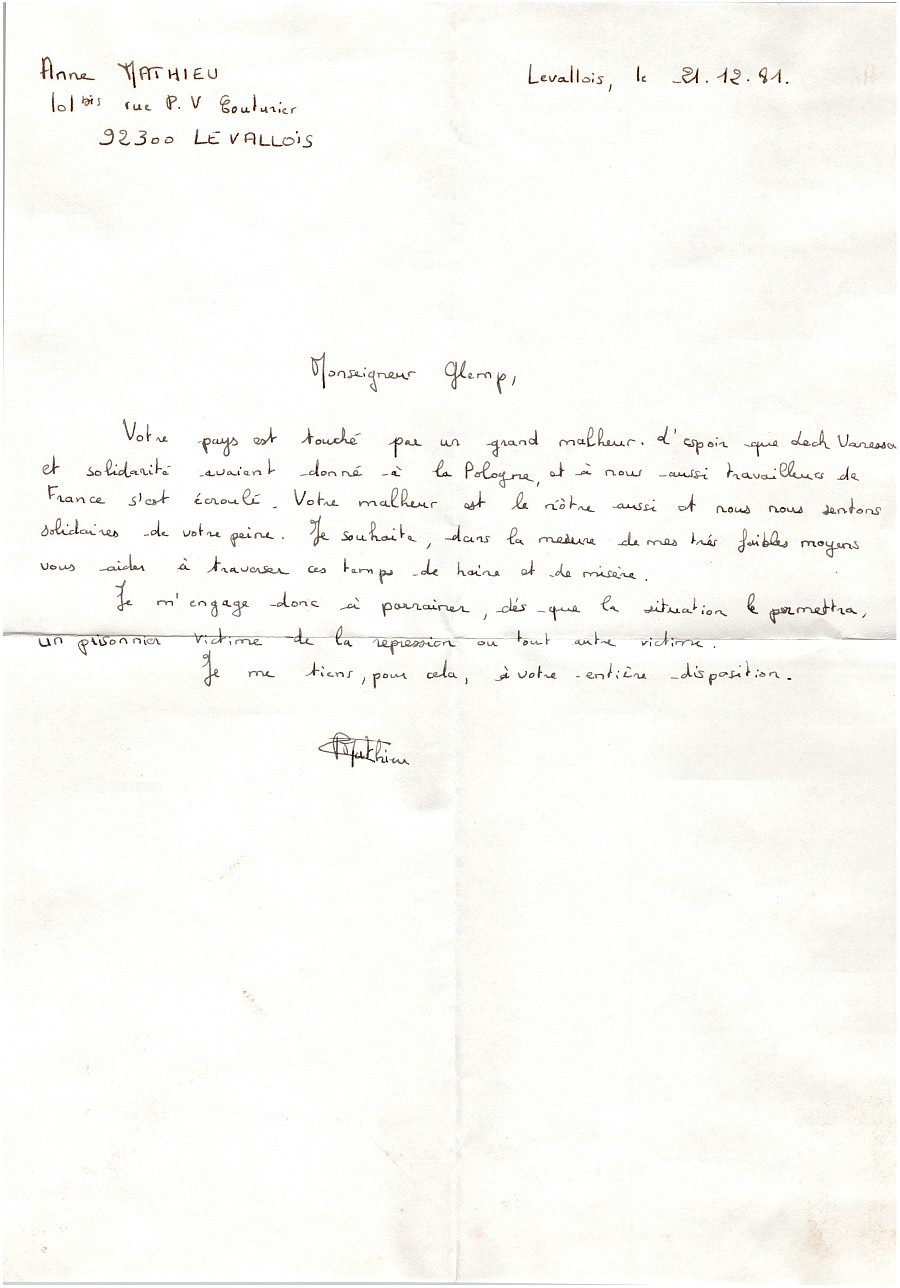 Anne MATHIEU
101 bis rue P. V Couturier
92300 LEVALLOIS
Levallois, le 21.12.81.
Monseigneur Glemp,
Votre pays est touché par un grand malheur. L'espoir que Lech Varessa
et solidarité avaient donné à la Pologne, et à nous aussi travailleurs de
France s'est écroulé. Votre malheur est le nôtre aussi et nous nous sentons
solidaires de votre peine. Je souhaite, dans la mesure de mes très faibles moyens
vous aider à traverser ces temps de haine et de misère.
Je m'engage donc à parrainer, dés que la situation le permettra,
un prisonnier victime de la repression ou tout autre victime.
Je me tiens, pour cela, à votre entière disposition.
Mathieu